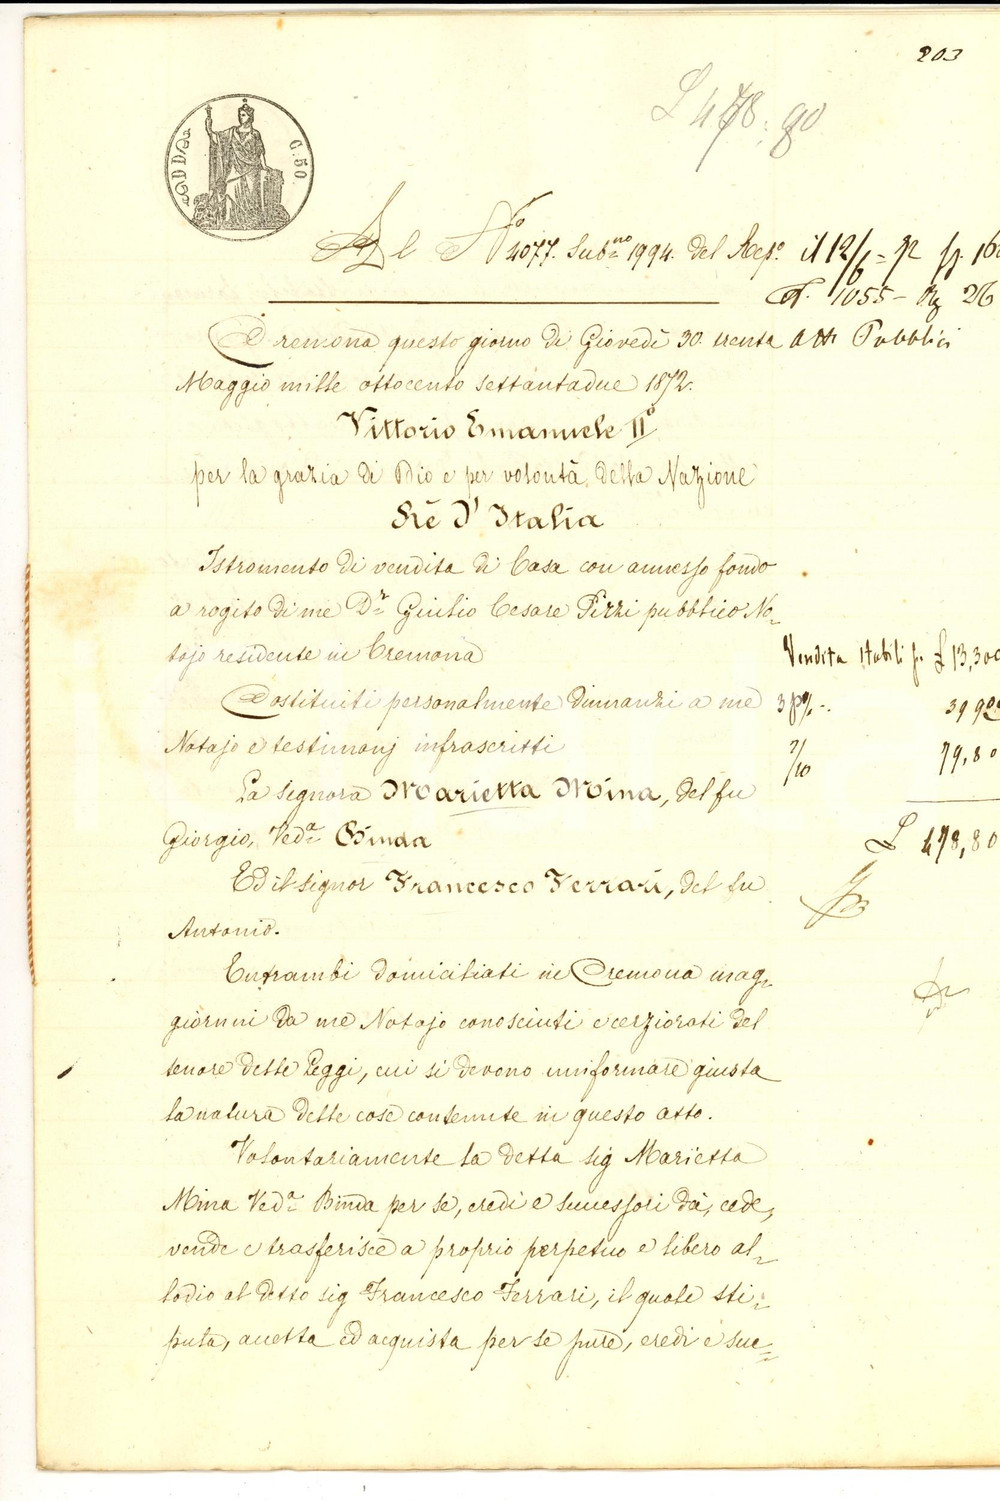 203
L 478:80
C. 50
Al N.o 4077. Sub.no 1994. del Rep.o il 12/6 =
1055 - 26
Cremona questo giorno di Giovedì 30. trenta Atti Pubblici
Maggio mille ottocento settantadue 1872.
Vittorio Emanuele II°
per la grazia di Dio e per volontà della Nazione
Rè D'Italia
Istromento di vendita di Casa con annesso fondo
a rogito di me Dr. Giulio Cesare Pizzi pubblico No-
tajo residente in Cremona
Vendita Stabili p. £ 13,300
Costituiti personalmente dinnanzi a me
3 p% -.
399.00
Notajo e testimonj infrascritti
2/10
79,80
La signora Marietta Mina, del fu
Giorgio, Ved.a Binda
£ 478,80
Ed il signor Francesco Ferrari, del fu
Antonio.
Entrambi domiciliati in Cremona mag-
giorenni da me Notajo conosciuti e cerziorati del
tenore delle Leggi, cui si devono uniformare giusta
la natura delle cose contenute in questo atto.
Volontariamente la detta sig Marietta
Mina Ved.a Binda per se, eredi e successori dà, cede,
vende e trasferisce a proprio perpetuo e libero al-
lodio al detto sig Francesco Ferrari, il quale sti-
pula, accetta ed acquista per se pure, eredi e suc-